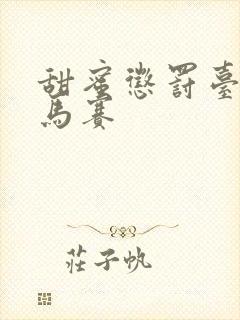 甜蜜懲罰臺
馬賽
莊子帆